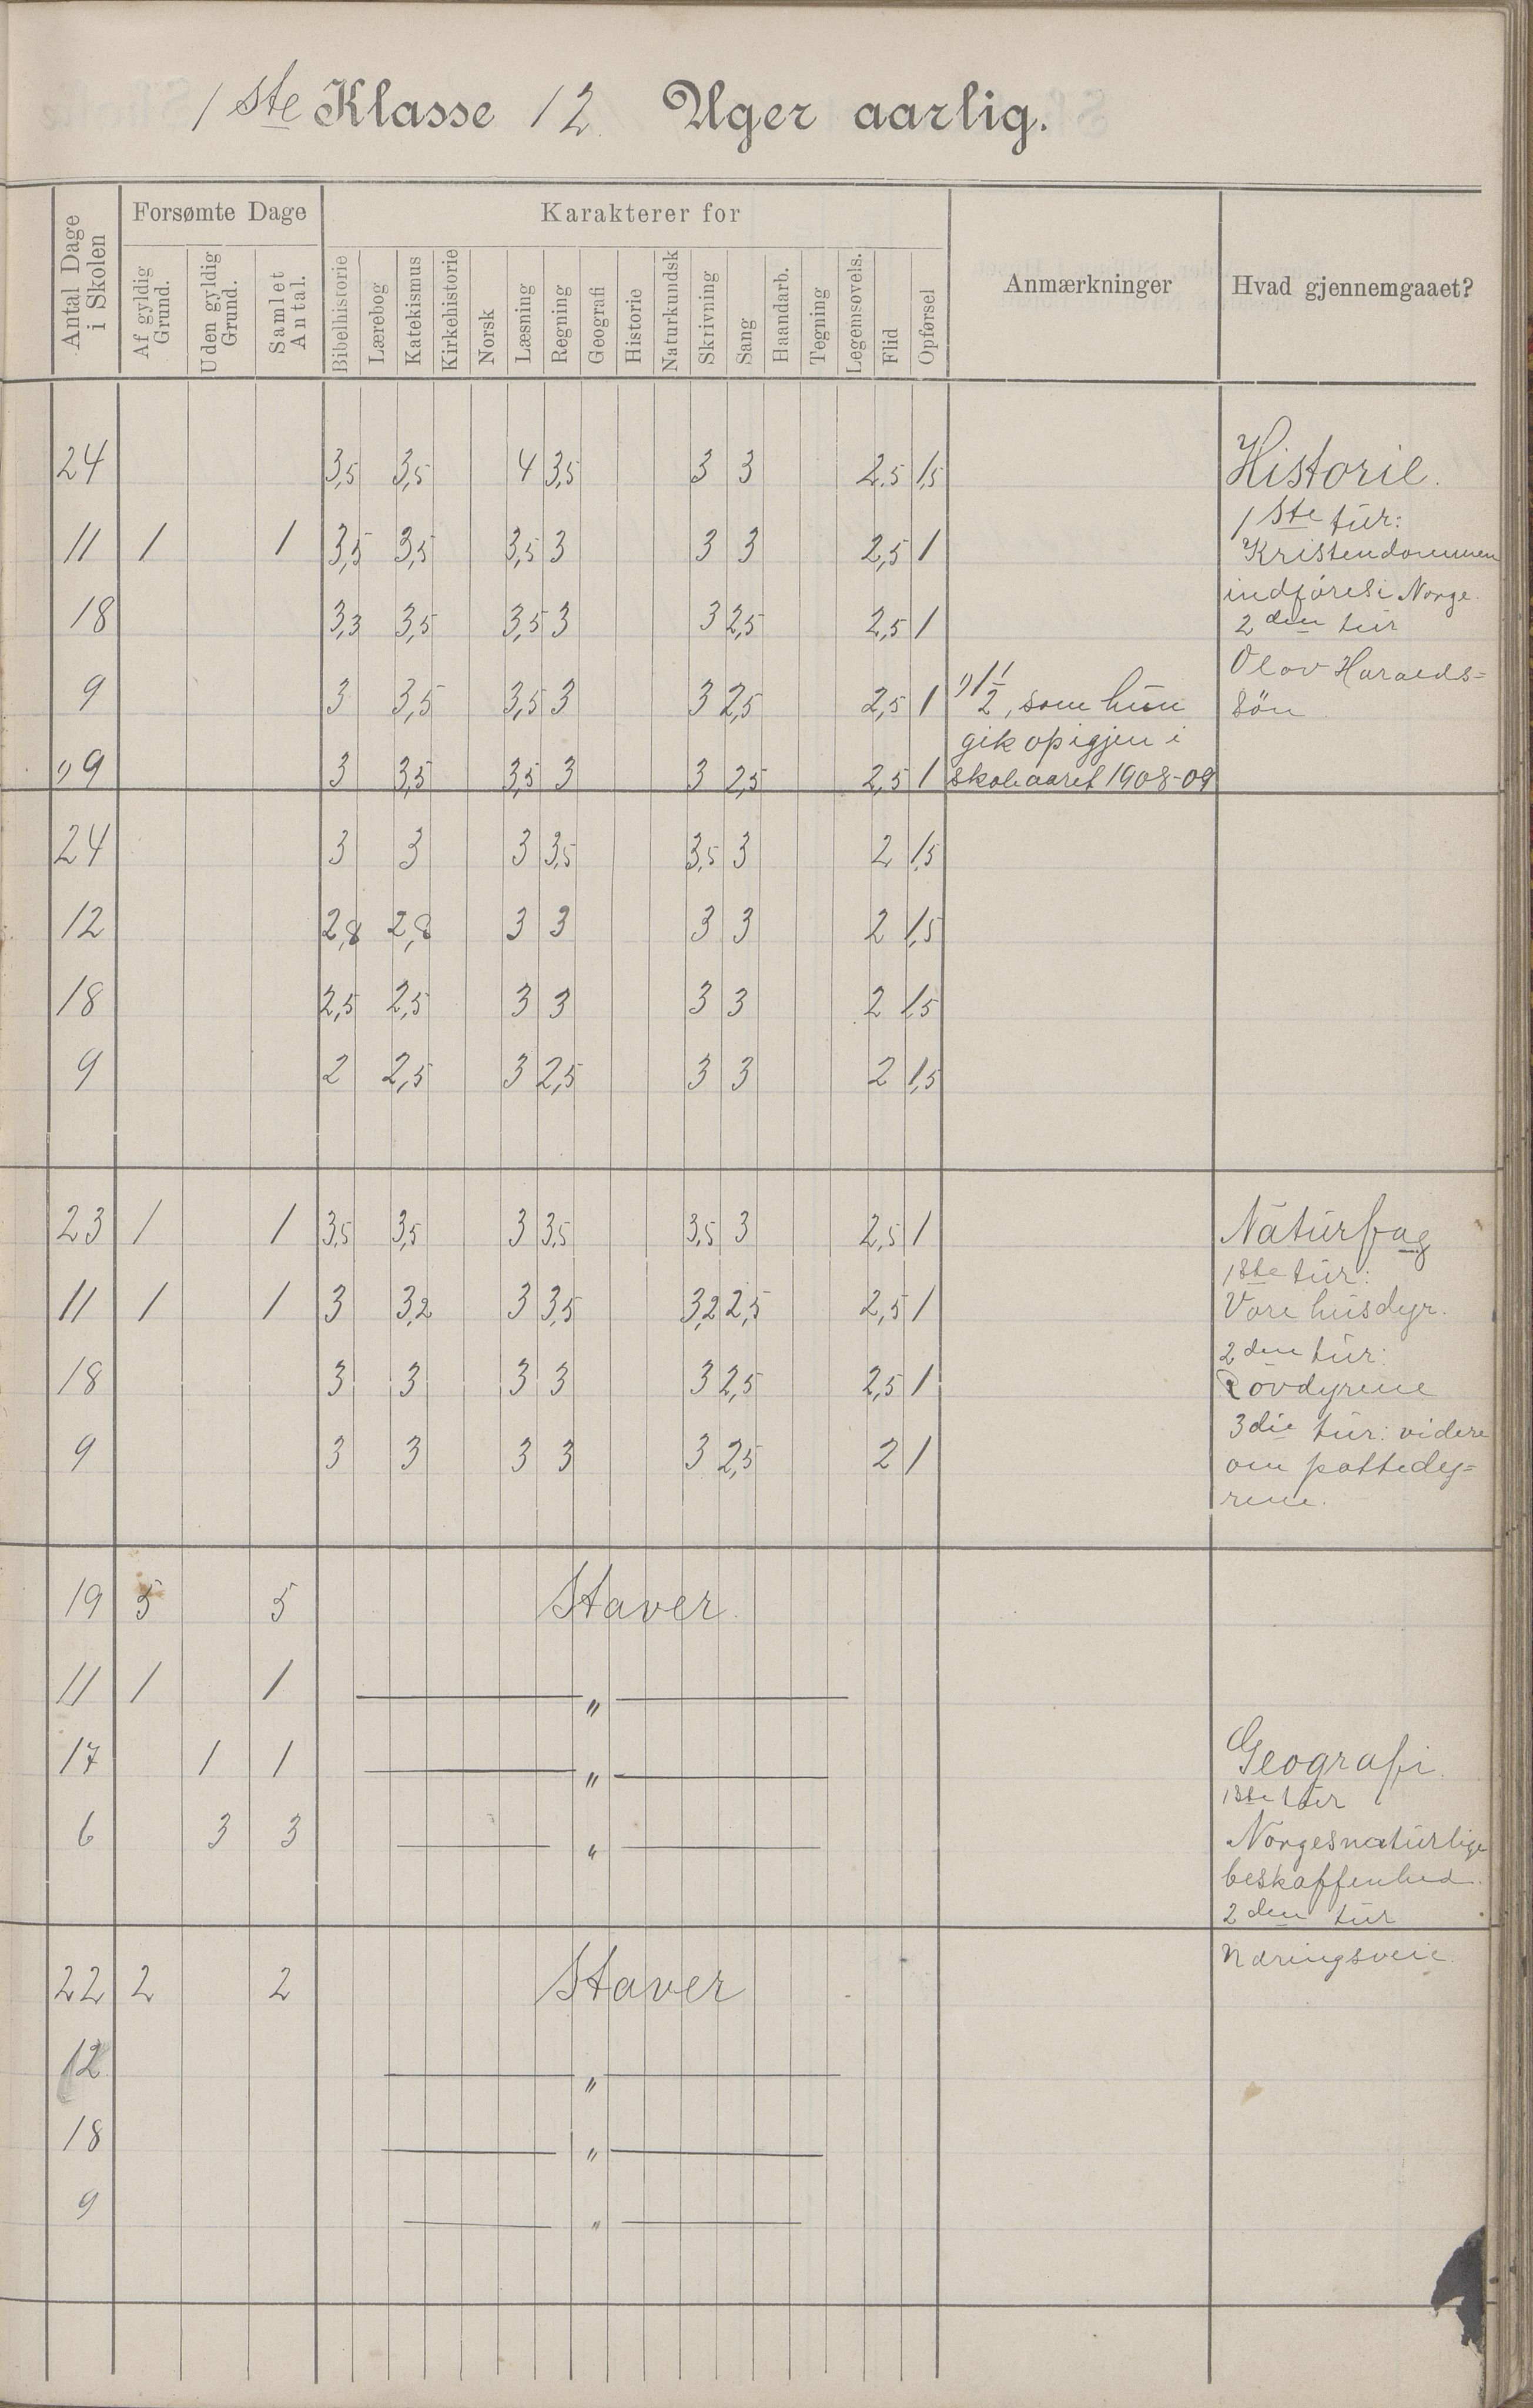 1ste Klasse 12 Uger aarlig.
Antal Dage i Skolen
Forsømte Dage
Karakterer for
Anmærkninger
Hvad gjennemgaaet?
Af gyldig Grund.
Uden gyldig Grund.
Samlet Antal.
Bibelhistorie
Lærebog
Katekismus
Kirkehistorie
Norsk
Læsning
Regning
Geografi
Historie
Naturkundsk
Skrivning
Sang
Haandarb.
Tegning
Legemsovels.
Flid
Opførsel
24 3,5 3,5 4 3,5 3 3 2,5 1,5
11 1 1 3,5 3,5 3,5 3 3 3 2,5 1
18 3,3 3,5 3,5 3 3 2,5 2,5 1
9 3 3,5 3,5 3 3 2,5 2,5 1
") 9 3 3,5 3,5 3 3 2,5 2,5 1
") 1/2, som hun
gik op igjen i
skoleaaret 1908-09
Historie.
1ste tur:
Kristendommen
indføres i Norge.
2den tur
Olav Haralds=
søn
24 3 3 3 3,5 3,5 3 2 1,5
12 2,8 2,8 3 3 3 3 2 1,5
18 2,5 2,5 3 3 3 3 2 1,5
9 2 2,5 3 2,5 3 3 2 1,5
23 1 1 3,5 3,5 3 3,5 3,5 3 2,5 1
11 1 1 3 3,2 3 3,5 3,2 2,5 2,5 1
18 3 3 3 3 3 2,5 2,5 1
9 3 3 3 3 3 2,5 2 1
Naturfag
1ste tur:
Vore husdyr.
2den tur:
Rovdyrene
3die tur: videre
om pattedy=
rene.
19 5 5 Staver.
11 1 1 — " —
17 1 1 — " —
6 3 3 — " —
Geografi.
1ste tur
Norges naturlige
beskaffenhed.
2den tur
Næringsveie.
22 2 2 Staver
12 — " —
18 — " —
9 — " —